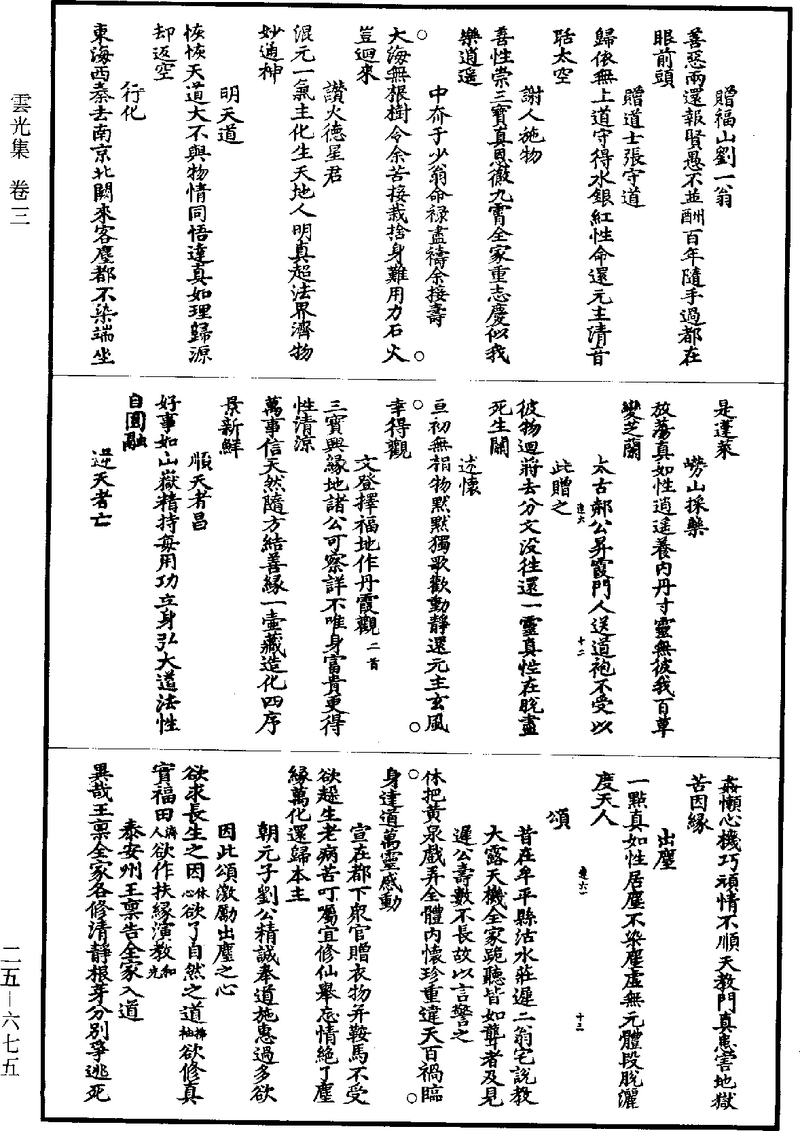 贈福山劉一翁
善惡兩還報賢愚不並酬百年隨手過都在
眼前頭
贈道士張守道
歸依無上道守得水銀紅性命還元主清音
聒太空
謝人施物
善性崇三寶真恩徹九霄全家重志慶似我
樂逍遥
中夼于少翁命禄盡禱余接壽
大海無根樹令余苦接栽捨身難用力石火
豈迴來
讃火德星君
混元一氣主化生天地人明真超法界濟物
妙通神
明天道
恢恢天道大不與物情同悟達真如理歸源
却返空
行化
東海西秦去南京北闕來客塵都不染端坐
是蓬萊
嶗山採藥
放蕩真如性逍遥養內丹寸靈無彼我百草
變芝蘭
太古郝公昇霞門人送道袍不受以
此贈之
彼物迴將去分文没往還一靈真性在脱盡
死生關
述懷
亘初無相物默默獨歌歡動靜還元主玄風
幸得觀
文登擇福地作丹霞觀二首
三寶興緣地諸公可察詳不唯身富貴更得
性清涼
萬事信天然隨方結善緣一壷藏造化四序
景新鮮
順天者昌
好事如山嶽精持每用功立身弘大道法性
自圓融
逆天者亡
姦懶心機巧頑情不順天教門真患害地獄
苦因緣
出塵
一點真如性居塵不染塵虛無元體段脱灑
度天人
頌
昔在牟平縣沽水莊遲二翁宅說教
大露天機全家跪聽皆如聾者及見
遲公壽數不長故以言警之
休把黄泉戲弄全體內懷珍重違天百禍臨
身達道萬靈感動
宣在都下衆官贈衣物并鞍馬不受
欲趍生老病苦叮囑宜修仙舉忘情絶了塵
緣萬化還歸本主
朝元子劉公精誠奉道施惠過多欲
因此頌激勵出塵之心
欲求長生之因休心欲了自然之道欲修真
實福田濟人欲作扶緣演教和光
泰安州王稟告全家入道
異哉王稟全家各修清靜根芽分別爭逃死
雲光集 卷三
二五—六七五